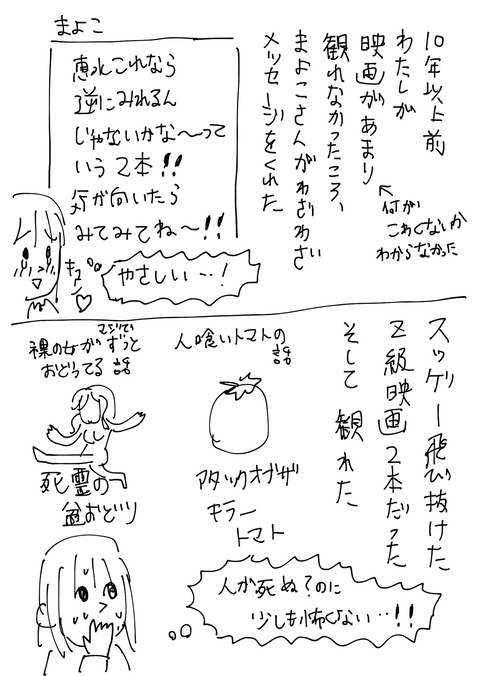 10年以上前
わたしが
映画があまり
観れなかったころ、
まよこさんがわざわざ
メッセージをくれた
何が
こわくないか
わからなかった
まよこ
恵水これなら
逆にみれるん
じゃないかな〜って
いう2本!!
気が向いたら
みてみてね〜!!
やさしい…!
キュン
スッゲー飛び抜けた
Z級映画2本だった
そして 観れた
人喰いトマトの
話
アタックオブザ
キラー
トマト
裸の女がマジでずっと
おどってる話
死霊の
盆おどり
人が死ぬ?のに
少しも怖くない…!!